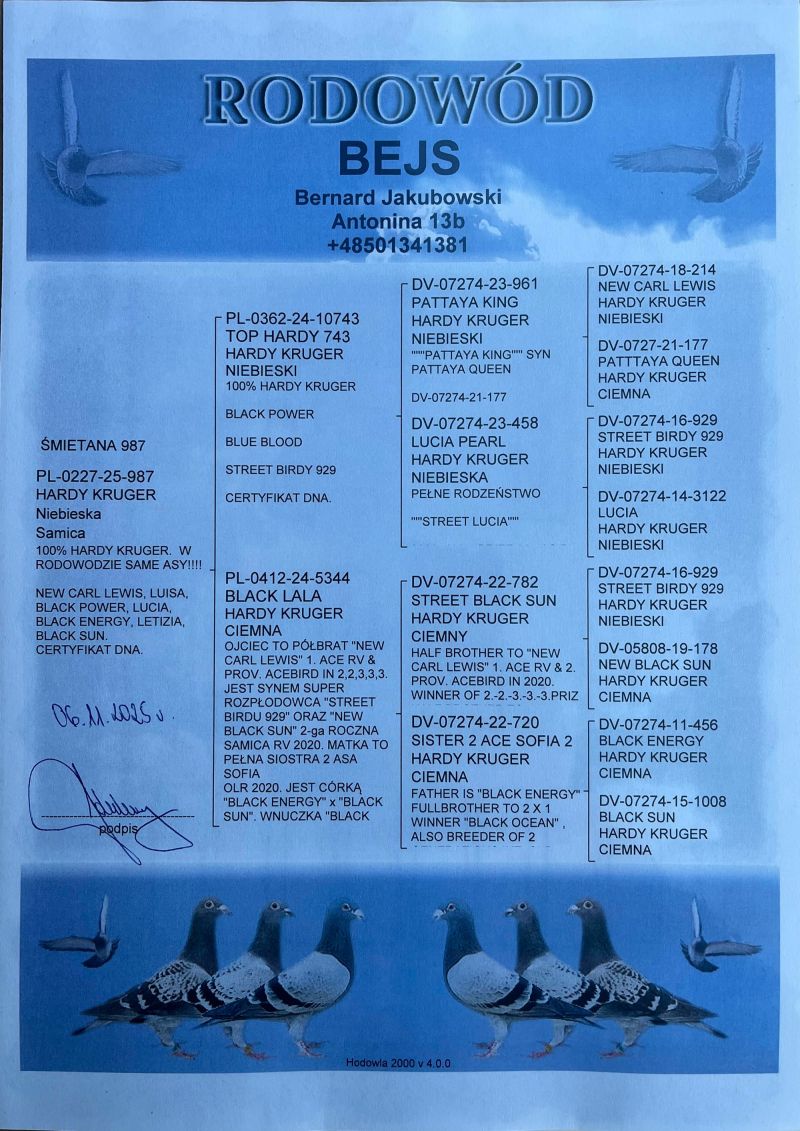 RODOWÓD
BEJS
Bernard Jakubowski
Antonina 13b
+48501341381
ŚMIETANA 987
PL-0227-25-987
HARDY KRUGER
Niebieska
Samica
100% HARDY KRUGER. W
RODOWODZIE SAME ASY!!!!
NEW CARL LEWIS, LUISA,
BLACK POWER, LUCIA,
BLACK ENERGY, LETIZIA,
BLACK SUN.
CERTYFIKAT DNA.
06.11.2025 r.
podpis
PL-0362-24-10743
TOP HARDY 743
HARDY KRUGER
NIEBIESKI
100% HARDY KRUGER
BLACK POWER
BLUE BLOOD
STREET BIRDY 929
CERTYFIKAT DNA.
PL-0412-24-5344
BLACK LALA
HARDY KRUGER
CIEMNA
OJCIEC TO PÓŁBRAT "NEW
CARL LEWIS" 1. ACE RV &
PROV. ACEBIRD IN 2,2,3,3,3.
JEST SYNEM SUPER
ROZPŁODOWCA "STREET
BIRDU 929" ORAZ "NEW
BLACK SUN" 2-ga ROCZNA
SAMICA RV 2020. MATKA TO
PEŁNA SIOSTRA 2 ASA
SOFIA
OLR 2020. JEST CÓRKĄ
"BLACK ENERGY" x "BLACK
SUN". WNUCZKA "BLACK
DV-07274-23-961
PATTAYA KING
HARDY KRUGER
NIEBIESKI
"""PATTAYA KING""" SYN
PATTAYA QUEEN
DV-07274-21-177
DV-07274-23-458
LUCIA PEARL
HARDY KRUGER
NIEBIESKA
PEŁNE RODZEŃSTWO
"""STREET LUCIA"""
DV-07274-22-782
STREET BLACK SUN
HARDY KRUGER
CIEMNY
HALF BROTHER TO "NEW
CARL LEWIS" 1. ACE RV & 2.
PROV. ACEBIRD IN 2020.
WINNER OF 2.-2.-3.-3.-3.PRIZ
DV-07274-22-720
SISTER 2 ACE SOFIA 2
HARDY KRUGER
CIEMNA
FATHER IS "BLACK ENERGY"
FULLBROTHER TO 2 X 1
WINNER "BLACK OCEAN" ,
ALSO BREEDER OF 2
DV-07274-18-214
NEW CARL LEWIS
HARDY KRUGER
NIEBIESKI
DV-0727-21-177
PATTTAYA QUEEN
HARDY KRUGER
CIEMNA
DV-07274-16-929
STREET BIRDY 929
HARDY KRUGER
NIEBIESKI
DV-07274-14-3122
LUCIA
HARDY KRUGER
NIEBIESKI
DV-07274-16-929
STREET BIRDY 929
HARDY KRUGER
NIEBIESKI
DV-05808-19-178
NEW BLACK SUN
HARDY KRUGER
CIEMNA
DV-07274-11-456
BLACK ENERGY
HARDY KRUGER
CIEMNA
DV-07274-15-1008
BLACK SUN
HARDY KRUGER
CIEMNA
Hodowla 2000 v 4.0.0